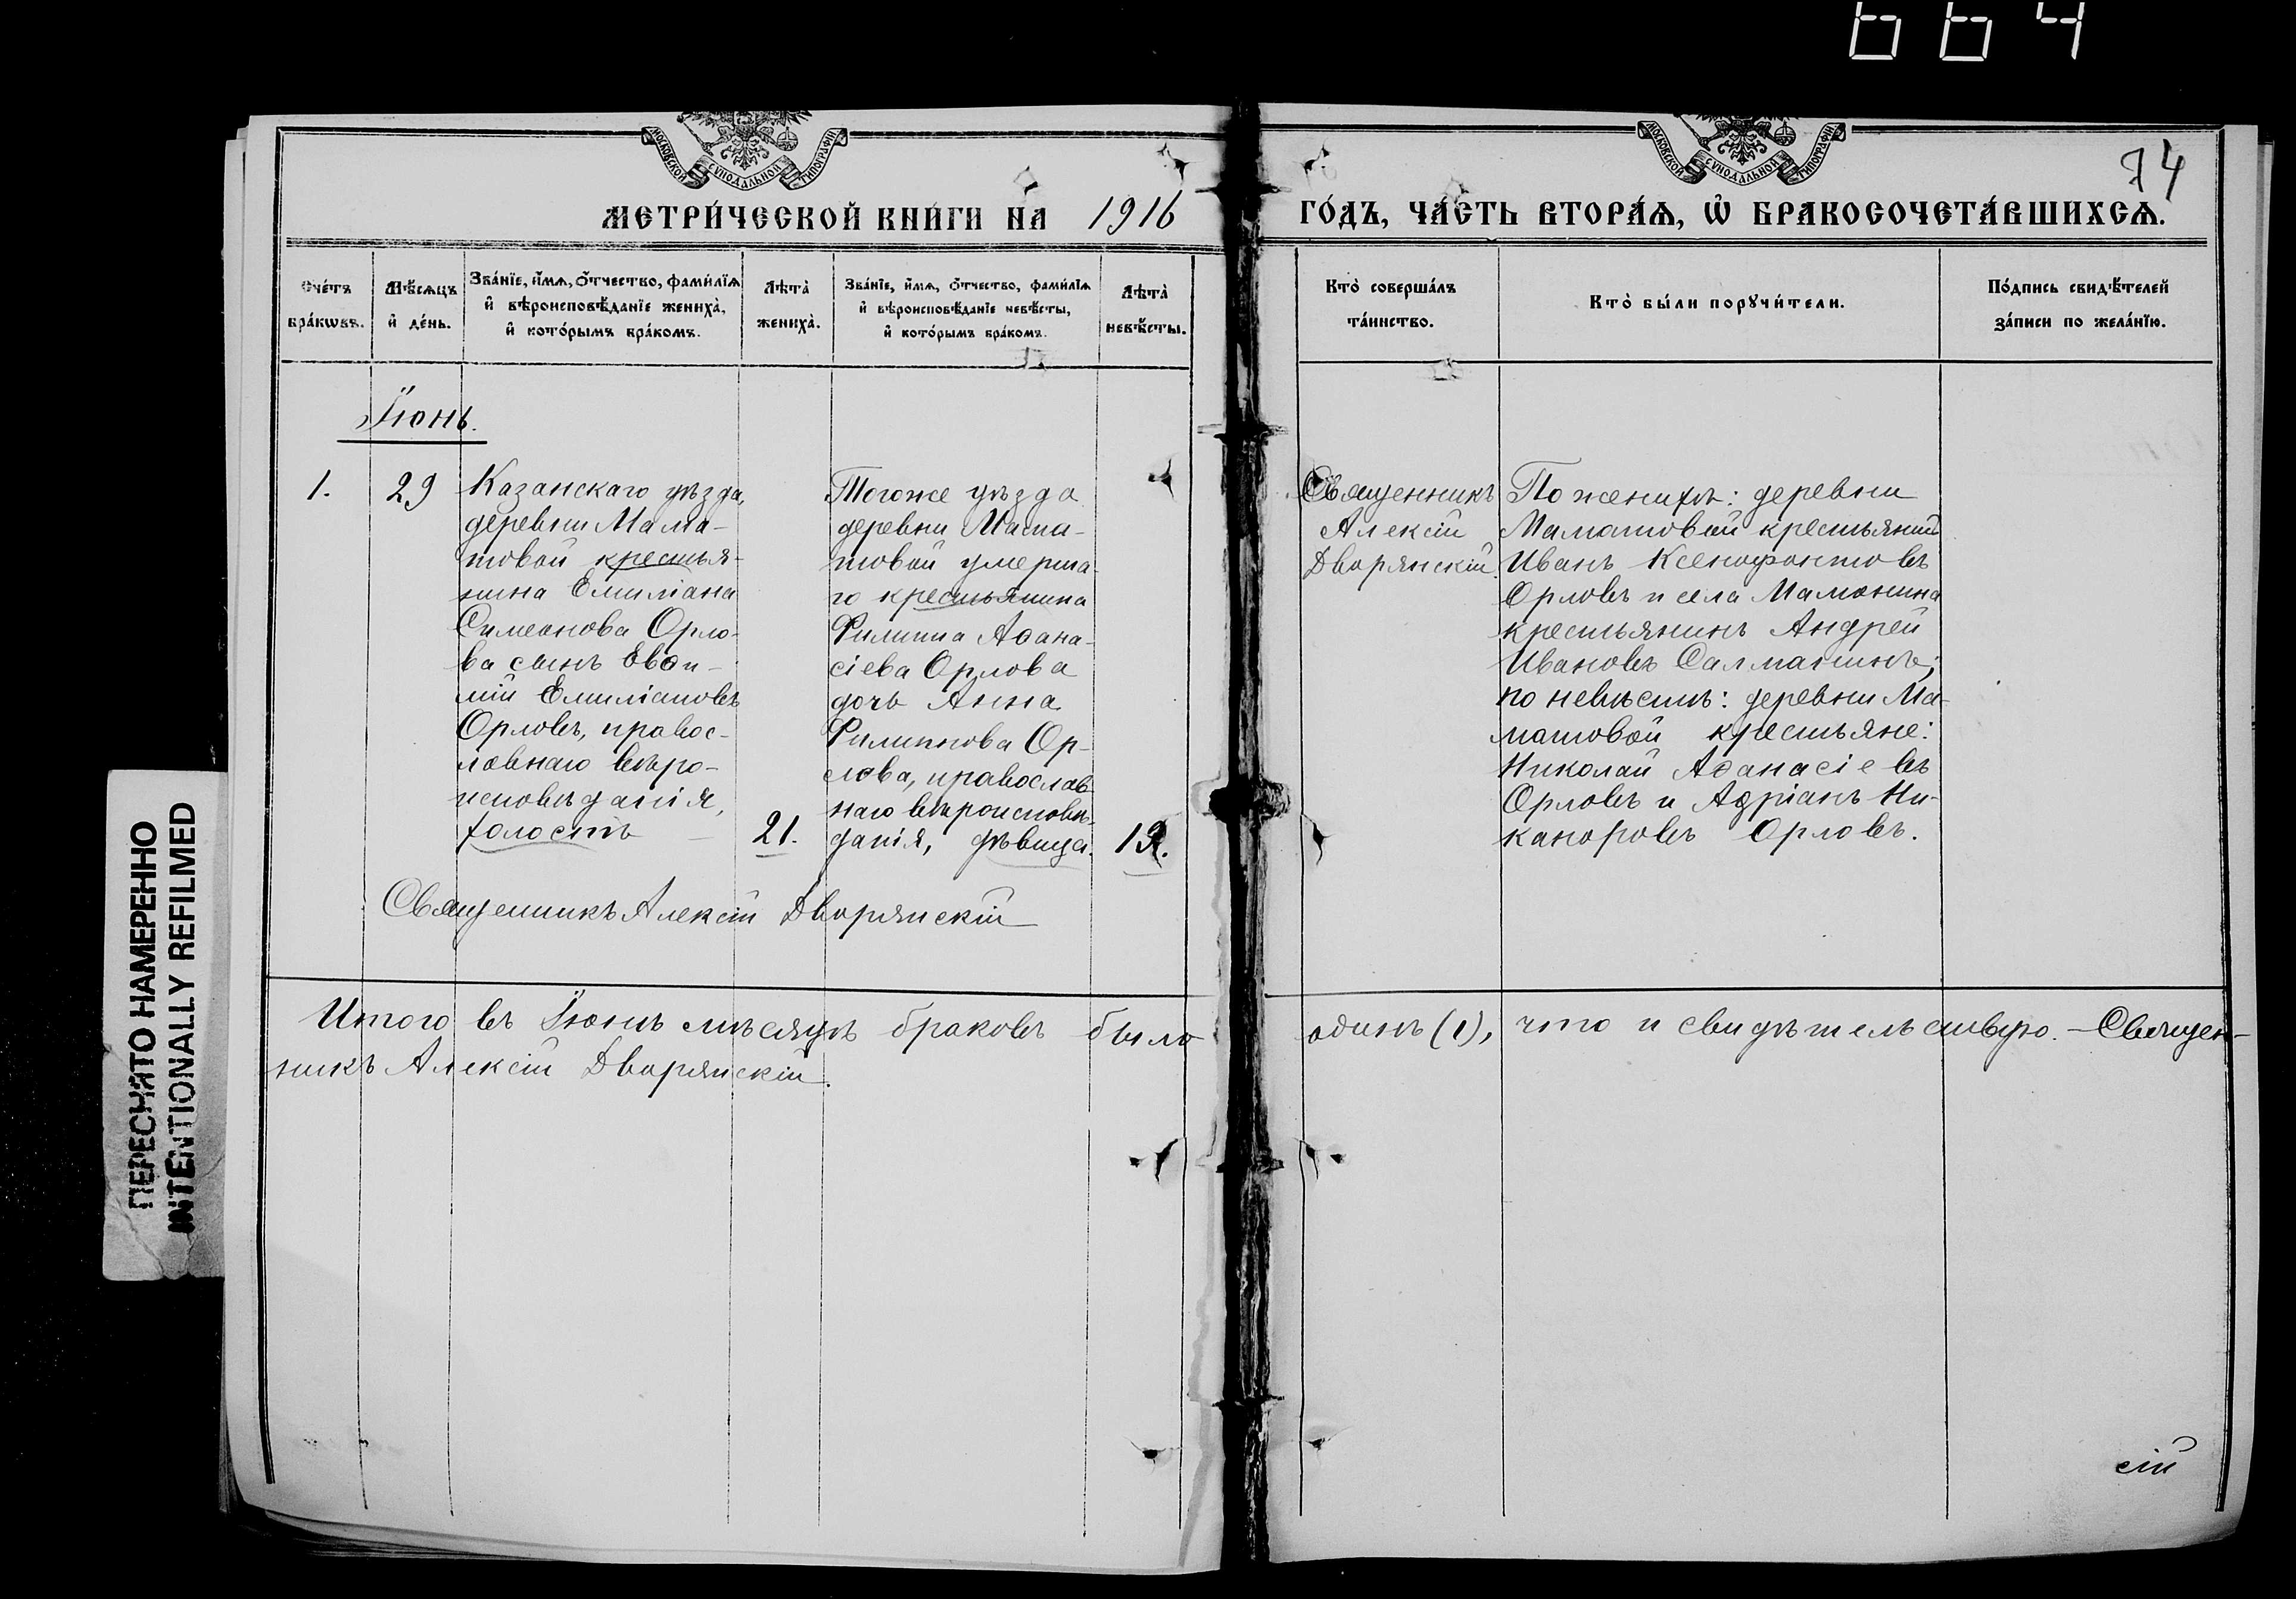 664
МОСКОВСКОЙ СѴНОДАЛЬНОЙ ТИПОГРАФІИ
МОСКОВСКОЙ СѴНОДАЛЬНОЙ ТИПОГРАФІИ
74
МЕТРИ́ЧЕСКОЙ КНИ́ГИ НА 1916
ГО́ДЪ, ЧА́СТЬ ВТОРА́Ѧ, Ѽ БРАКОСОЧЕТА́ВШИХСѦ.
Сче́тъ
бра́кѡвъ.
Мѣ́сѧцъ
и҆ де́нь.
Зва́нїе, и҆́мѧ, ѻ҆́тчество, фами́лїѧ
и҆ вѣроисповѣ́данїе жениха̀,
и҆ кото́рымъ бра́комъ.
Лѣта̀
жениха̀.
Зва́нїе, и҆́мѧ, ѻ҆́тчество, фами́лїѧ
и҆ вѣроисповѣ́данїе невѣ́сты,
и҆ кото́рымъ бра́комъ.
Лѣта̀
невѣ́сты.
Кто̀ соверша́лъ
та́инство.
Кто̀ бы́ли порꙋчи́тели.
По́дпись свидѣ́телей
за́писи по жела́нїю.
Іюнь.
1.
29
Казанскаго уѣзда,
деревни Мама-
товой крестья-
нина Емиліана
Симеонова Орло-
ва сынъ Евѳи-
мій Емиліановъ
Орловъ, правос-
лавнаго вѣро-
исповѣданія,
холостъ
21.
Тогоже уѣзда
деревни Мама-
товой умерша-
го крестьянина
Филиппа Аѳана-
сіева Орлова
дочь Анна
Филиппова Ор-
лова, православ-
наго вѣроисповѣ-
данія, дѣвица.
Священникъ
Алексій
Дворянскій.
По женихѣ: деревни
Маматовой крестьянинъ
Иванъ Ксенофонтовъ
Орловъ и села Мамонина
крестьянинъ Андрей
Ивановъ Салмашинъ;
по невѣстѣ: деревни Ма-
матовой крестьяне:
Николай Аѳанасіевъ
Орловъ и Адріанъ Ни-
каноровъ Орловъ.
Священникъ Алексій Дворянскій
Итого въ Іюнѣ мѣсяцѣ браковъ было одинъ (1), что и свидѣтельствую. – Священ-
никъ Алексій Дворянскій.
сій
ПЕРЕСНЯТО НАМЕРЕННО
INTENTIONALLY REFILMED